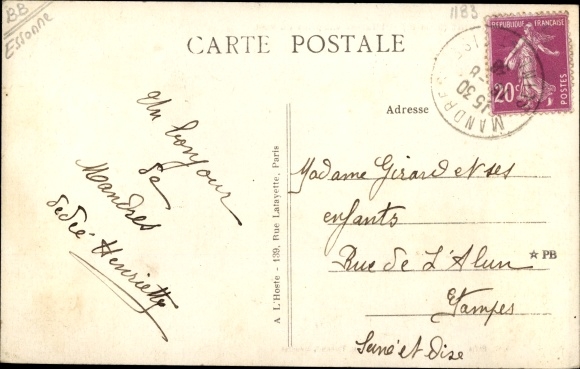 BB
Essonne
1183
CARTE POSTALE
REPUBLIQUE FRANÇAISE
20c
POSTES
MANDRES
15 30
Adresse
Un bonjour
de
Mandres
dédié Henriette
A. L'Hoste - 139, Rue Lafayette, Paris
Madame Girard et ses
enfants
Rue de L'Alun
☆ PB
Etampes
Seine et Oise